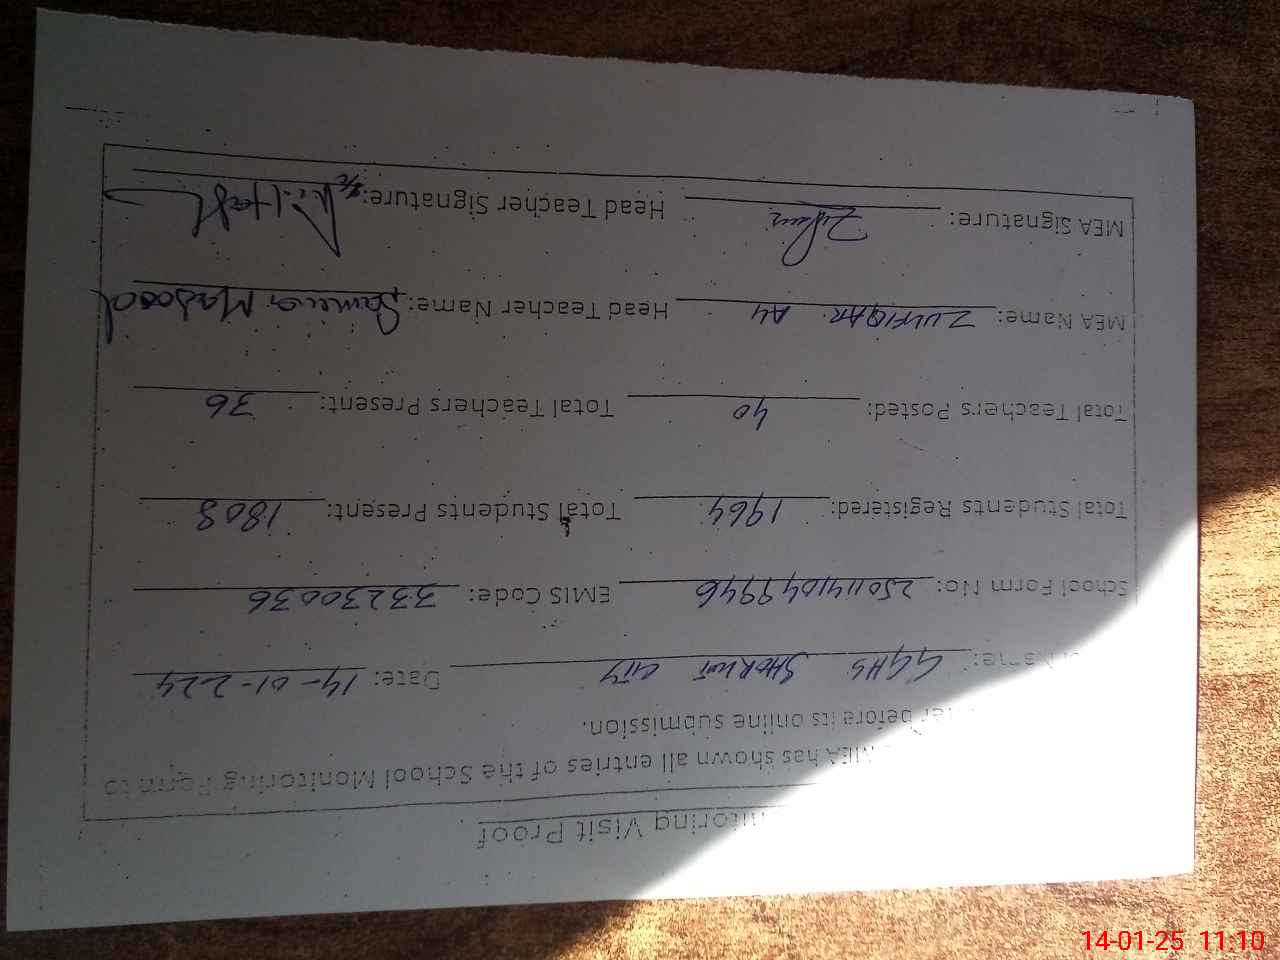 nitoring Visit Proof
MEA has shown all entries of the School Monitoring Form to
er before its online submission.
Name: GGHS SHORKOT CITY Date: 14-01-224
School Form No: 2501141049946 EMIS Code: 33230036
Total Students Registered: 1964 Total Students Present: 1808
Total Teachers Posted: 40 Total Teachers Present: 36
MEA Name: ZULFIQAR ALI Head Teacher Name: Samina Masood
MEA Signature: Head Teacher Signature:
14-01-25 11:10